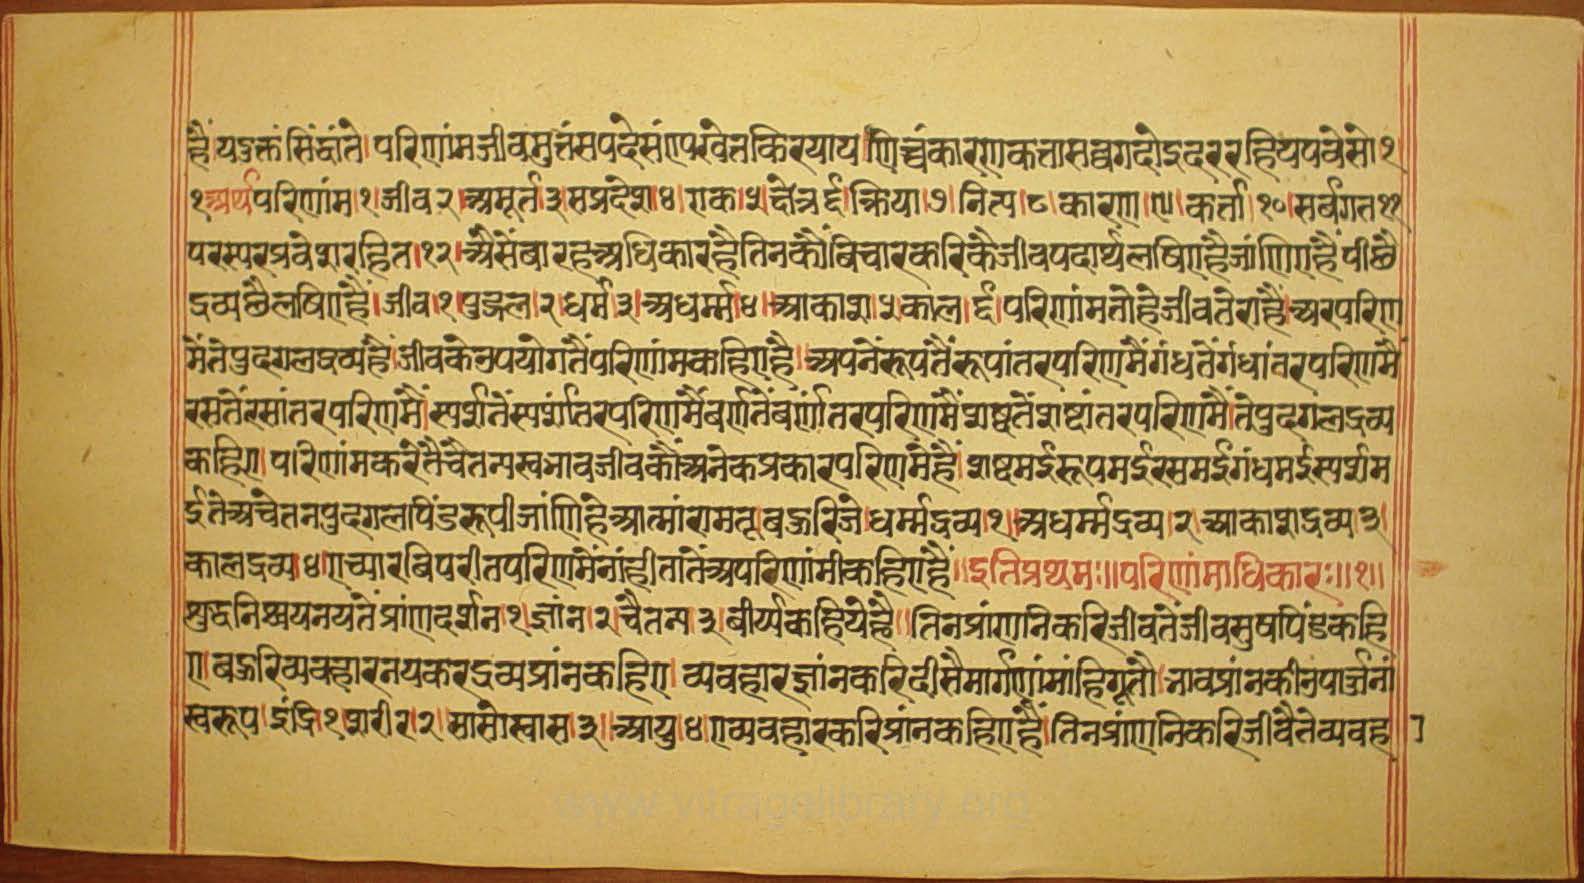 हैं। यदुक्तं सिद्धांते। परिणांमजीवमुत्तंसपदेसंएषवेतकिरयाय। णिच्चंकारणकत्तासव्वगदोइदररहियपवेसो। १
१ अर्थपरिणांम। १। जीव २। अमूर्त ३। सप्रदेश। ४। एक। ५। क्षेत्र ६। क्रिया। ७। नित्य। ८। कारण। ९। कर्ता। १०। सर्वगत ११
परस्परप्रवेशरहित। १२। अैसेंबारहअधिकारहैतिनकौंबिचारकरिकैजीवपदार्थलषिएहैजांणिएहैं। पीछै
द्रव्यछैलषिएहैं। जीव। १। पुद्गल। २। धर्म। ३। अधर्म्म। ४। आकाश। ५। काल। ६। परिणांमतोहेजीवतेराहैं। अरपरिण
मैंतेपुदगलद्रव्यहैं। जीवकेउपयोगतैंपरिणांमकहिएहै। अपनेंरूपतैंरूपांतरपरिणमैंगंधतेंगंधांतरपरिणमैं
रसतेंरसांतरपरिणमैं। स्पर्शतेंस्पर्शांतरपरिणमैंबर्णतेंबर्णांतरपरिणमैंशब्दतेंशब्दांतरपरिणमैं। तेपुदगलद्रव्य
कहिए। परिणांमकरेंतैचैतन्यस्वभावजीवकौंअनेकप्रकारपरिणमेंहैं। शब्दमईरूपमईरसमईगंधमईस्पर्शम
ईतेअचेतनपुदगलपिंडरूपीजांणिहेआत्मांरामतूबऊरिजे। धर्म्मद्रव्य। १। अधर्म्मद्रव्य। २। आकाशद्रव्य ३।
कालद्रव्य। ४। एच्यारबिपरीतपरिणमैंनांहीतातेंअपरिणांमीकहिएहैं॥ इतिप्रथमः॥ परिणांमाधिकारः॥ १॥
शुद्धनिश्चयनयतेंप्रांणदर्शन। १। ज्ञांन। २। चैतन्य। ३। बीर्य्यकहियेहै॥ तिनप्रांणनिकरिजीवतेंजीवसुषपिंडकहि
ए। बऊरिव्यवहारनयकरद्रव्यप्रांनकहिए। व्यवहारज्ञांनकरिदीसैमार्गणांमांहिगूतौ। भावप्रांनकीउपार्जनां
स्वरूप। इंद्रि। १। शरीर। २। सासोस्वास। ३। आयु। ४। एव्यवहारकरिप्रांनकहिएहैं। तिनप्रांणनिकरिजीवैतेव्यवह